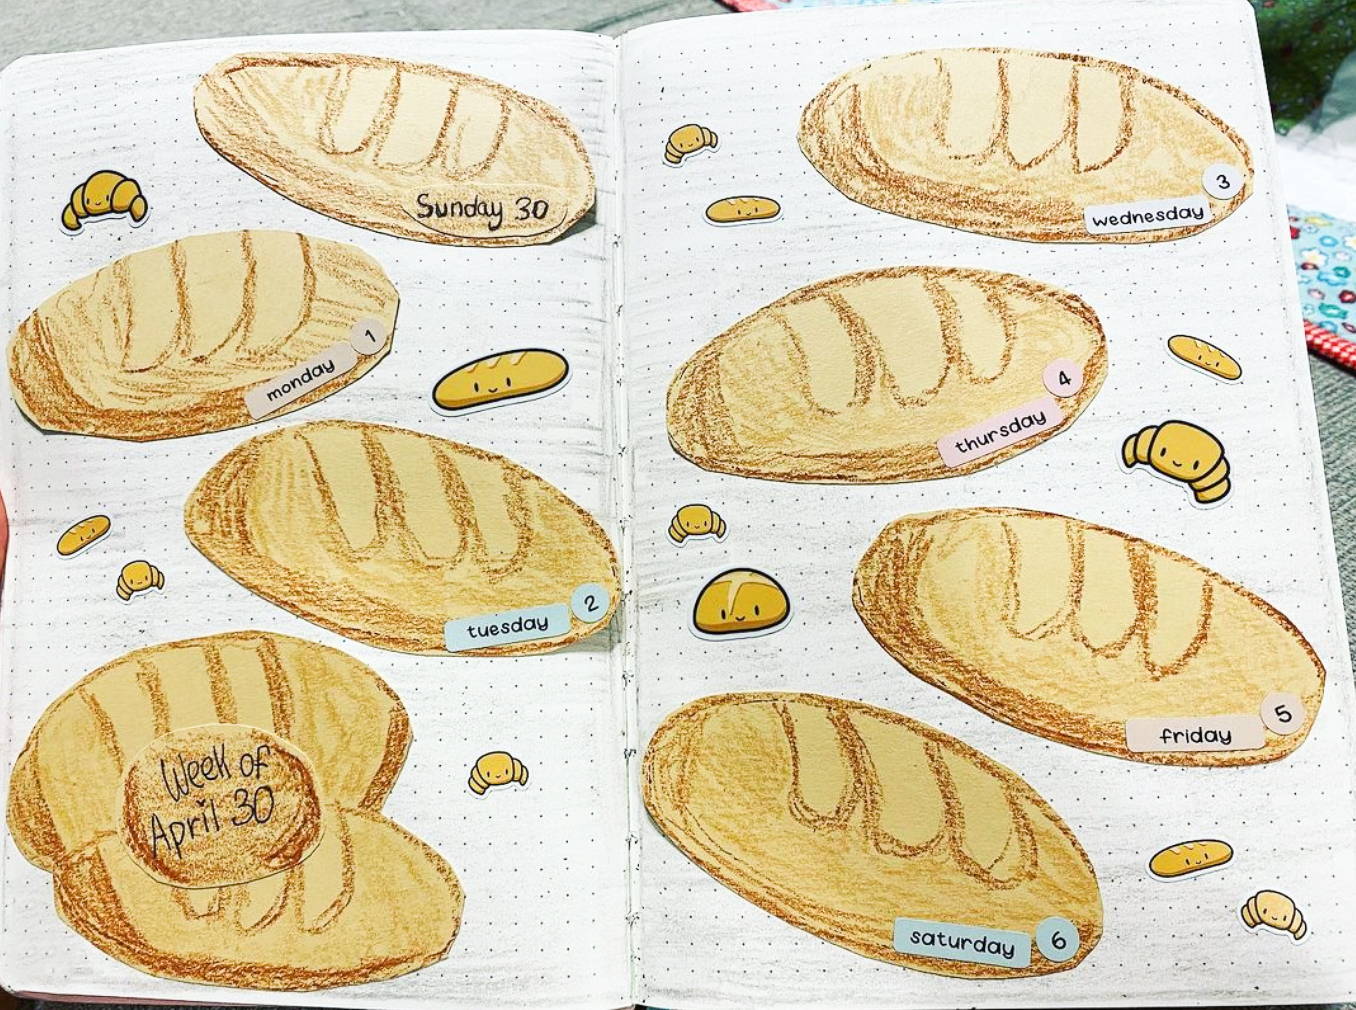 Sunday 30
monday 1
tuesday 2
Week of
April 30
wednesday 3
thursday 4
friday 5
saturday 6